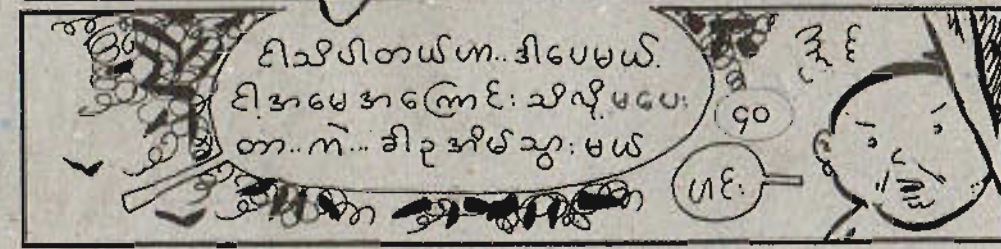 ငါသိပါတယ်ဟာ..ဒါပေမယ့်
ငါ့အမေအကြောင်းသိလို့မပေး
တာ..ကဲ...ခါဥအိမ်သွားမယ်
၄၀
ဟင်း